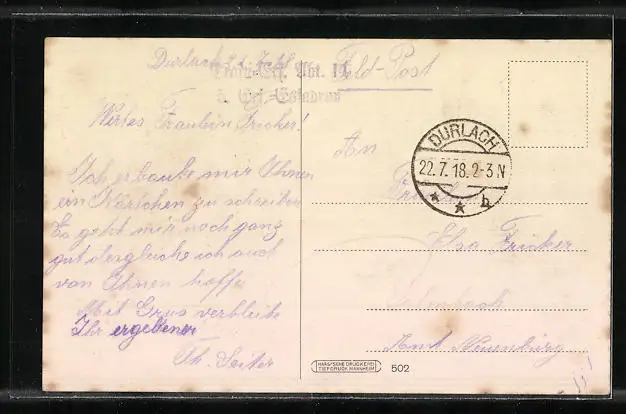 Durlach
Train-Ers. Abt. 14
Feld-Post
3. Ers.-Eskadron
Wertes Fräulein Fricker!
Ich erlaube mir Ihnen
ein Kärtchen zu schreiben
Es geht mir noch ganz
gut desgleiche ich auch
von Ihnen hoffe
Mit Grus verbleibe
Ihr ergebener
Th. Seiter
DURLACH
22.7.18.2-3N
* * h
An
Elsa Fricker
Amt Neuenbürg
HANS'SCHE DRUCKEREI
TIEFDRUCK MANNHEIM
502